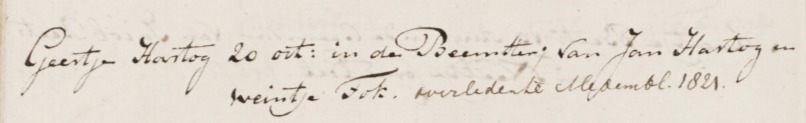 Geertje Hartog 20 oct: in de Beemster; van Jan Hartog en
weintje Fok. overleden te Medembl. 1821.